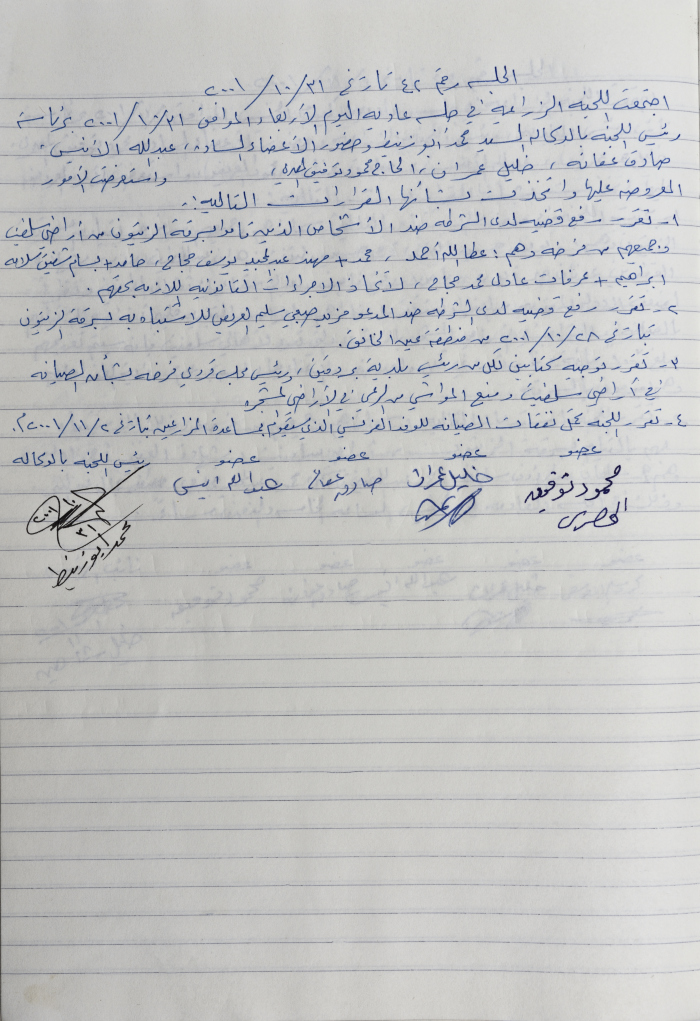 الجلسه رقم ٤٢ تاريخ ٣١/١٠/٢٠٠١
اجتمعت اللجنه الزراعيه في جلسه عاديه اليوم الأربعاء الموافق ٣١/١٠/٢٠٠١ برئاسة
رئيس اللجنه بالوكاله السيد محمد ابو زنط وحضور الأعضاء الساده، عبدالله الأنيس،
صادق عفانه، خليل عمران، الحاج محمود توفيق المصري، واستعرضت الأمور
المعروضه عليها واتخذت بشأنها القرارات التاليه:
١- تقرر رفع قضيه لدى الشرطه ضد الأشخاص الذين قاموا بسرقة الزيتون من أراضي سلفيت
وجميعهم من فرخه وهم: عطاالله أحمد، محمد + مهند عبدالمجيد يوسف حجاج، حامد + بسام شفيق سلامه
ابراهيم + عرفات عادل محمد حجاج، لاتخاذ الاجراءات القانونيه اللازمه بحقهم.
٢- تقرر رفع قضيه لدى الشرطه ضد المدعو صبحي سليم للاشتباه به لسرقة الزيتون
بتاريخ ٢٨/١٠/٢٠٠١ من منطقة عين الخانق.
٣- تقرر توجيه كتابين لكل من رئيس بلدية بروقين، ورئيس مجلب قروي فرخه بشأن الصيانه
في أراضي سلفيت ومنع المواشي من الرعي في الأراضي المشجره
٤- تقرر اللجنه تحمل نفقات الضيافه للوفد الفرنسي الذي سيقوم بمساعدة المزارعين بتاريخ ٢/١١/٢٠٠١م.
عضو عضو عضو عضو رئيس اللجنه بالوكاله
محمود توفيق خليل عمران صادق عفانه عبدالله انيس
المصري
٣١/١٠/٢٠٠١
محمد ابوزنط